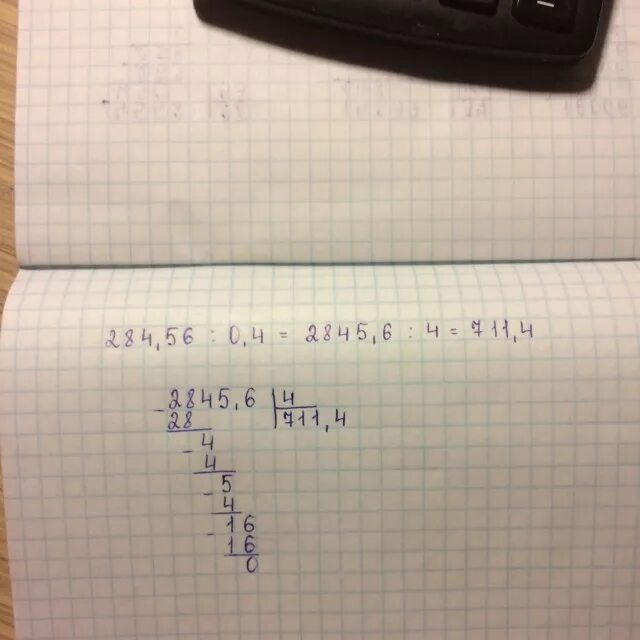 284,56 : 0,4 = 2845,6 : 4 = 711,4
2845,6 4
- 28 711,4
- 4
4
- 5
4
- 16
16
0